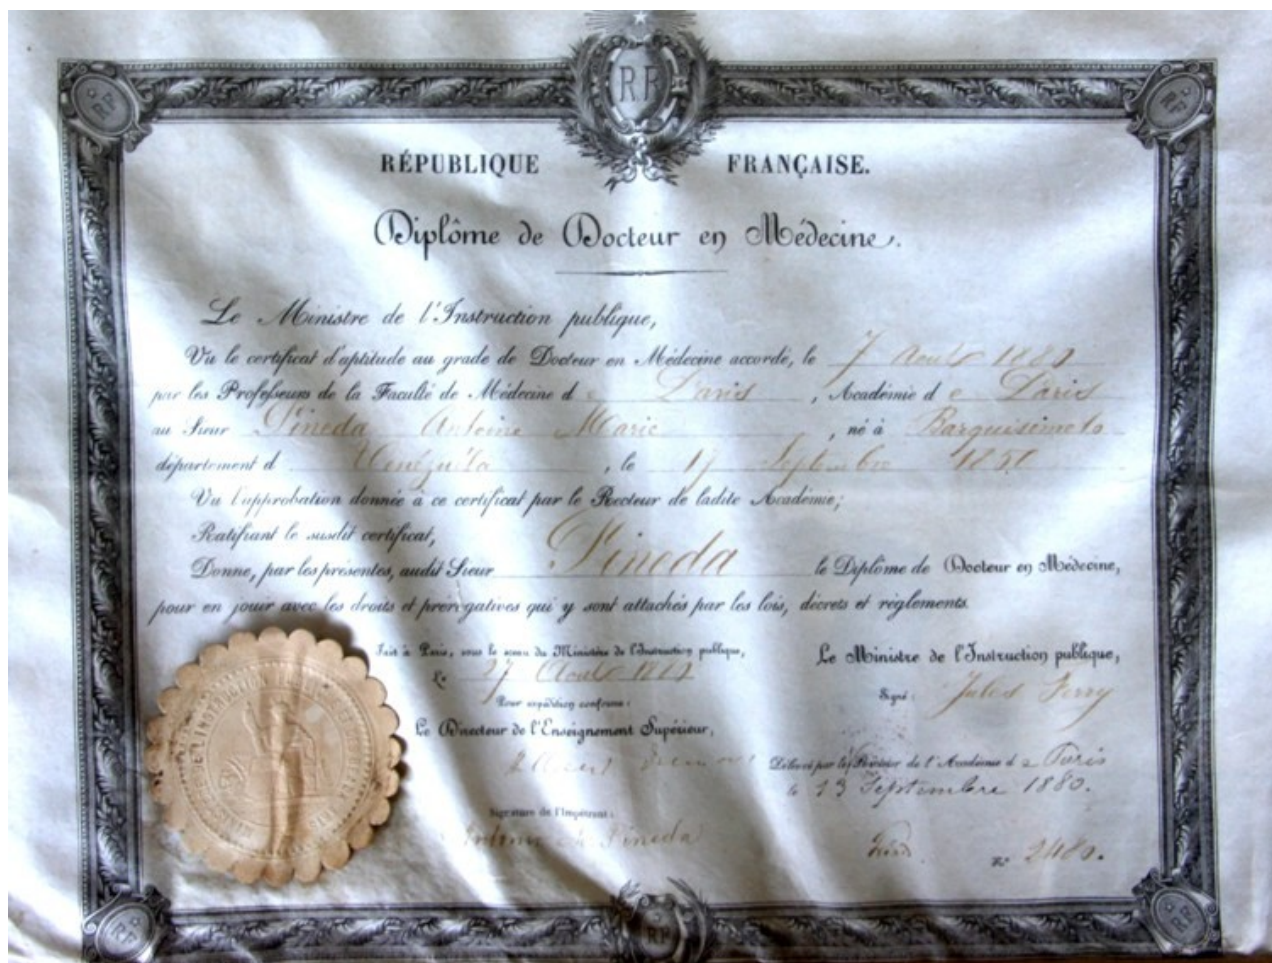 RF
RF
RF
RÉPUBLIQUE FRANÇAISE.
Diplôme de Docteur en Médecine.
Le Ministre de l'Instruction publique,
Vu le certificat d'aptitude au grade de Docteur en Médecine accordé, le 7 Août 1880
par les Professeurs de la Faculté de Médecine de Paris, Académie de Paris
au Sieur Pineda Antoine Marie, né à Barquisimeto
département d Vénézuéla, le 17 Septembre 1850
Vu l'approbation donnée à ce certificat par le Recteur de ladite Académie;
Ratifiant le susdit certificat,
Donne, par les présentes, audit Sieur Pineda le Diplôme de Docteur en Médecine,
pour en jouir avec les droits et prérogatives qui y sont attachés par les lois, décrets et règlements.
Fait à Paris, sous le sceau du Ministère de l'Instruction publique,
Le 27 Août 1880
Pour expédition conforme:
Le Directeur de l'Enseignement Supérieur,
Le Ministre de l'Instruction publique,
Signé: Jules Ferry
Délivré par le Recteur de l'Académie de Paris
le 13 Septembre 1880.
Signature de l'Impétrant:
Antonio M. Pineda
N° 2480.
RF
RF
RF